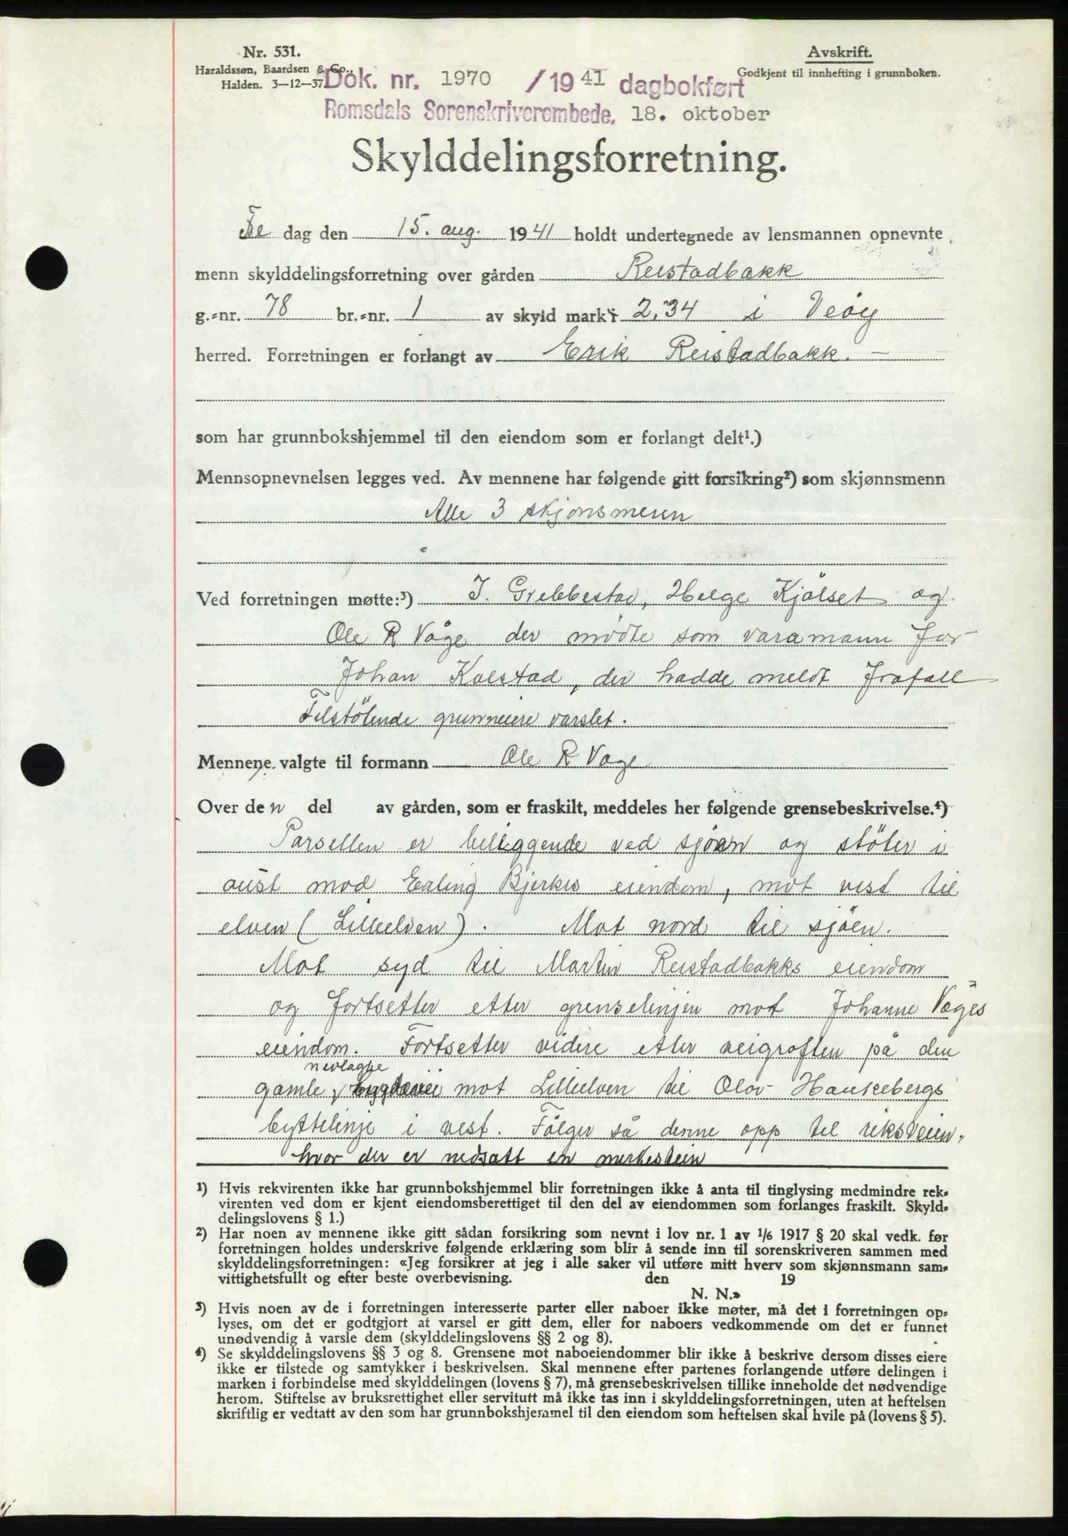 Nr. 531.
Haraldssøn, Baardsen & Co.,
Halden. 3—12—37.
Avskrift.
Godkjent til innhefting i grunnboken.
Dok. nr. 1970 /1941 dagbokført
Romsdals Sorenskriverembede, 18. oktober
Skylddelingsforretning.
Fre dag den 15. aug. 1941 holdt undertegnede av lensmannen opnevnte
menn skylddelingsforretning over gården Reistadbakk
g.-nr. 78 br.-nr. 1 av skyld mark 2,34 i Veöy
herred. Forretningen er forlangt av Erik Reistadbakk. —
som har grunnbokshjemmel til den eiendom som er forlangt delt¹.)
Mennsopnevnelsen legges ved. Av mennene har følgende gitt forsikring²) som skjønnsmenn
Alle 3 skjonsmenn
Ved forretningen møtte:³) I. Grebbestad, Helge Kjölset og
Ole R Våge der mödte som varamann for
Johan Kolstad, der hadde meldt frafall
Tilstötende grunneiere varslet.
Mennene valgte til formann Ole R Vage
Over den del av gården, som er fraskilt, meddeles her følgende grensebeskrivelse.⁴)
Parsellen er beliggende ved sjöen og stöter i
aust mod Erling Bjerkes eiendom, mot vest til
elven (Lilleelven). Mot nord til sjöen.
Mot syd til Martin Reistadbakks eiendom
og fortsetter etter grenselinjen mot Johanne Våges
eiendom. Fortsetter videre etter veigroften på den
nedlagte
gamle, bygdevei mot Lilleelven til Olov Haukebergs
byttelinje i vest. Fölger så denne opp til riksveien,
hvor der er nedsatt en merkestein
¹) Hvis rekvirenten ikke har grunnbokshjemmel blir forretningen ikke å anta til tinglysing medmindre rek-
virenten ved dom er kjent eiendomsberettiget til den del av eiendommen som forlanges fraskilt. Skyld-
delingslovens § 1.)
²) Har noen av mennene ikke gitt sådan forsikring som nevnt i lov nr. 1 av 1/6 1917 § 20 skal vedk. før
forretningen holdes underskrive følgende erklæring som blir å sende inn til sorenskriveren sammen med
skylddelingsforretningen: «Jeg forsikrer at jeg i alle saker vil utføre mitt hverv som skjønnsmann sam-
vittighetsfullt og efter beste overbevisning. den 19
N. N.»
³) Hvis noen av de i forretningen interesserte parter eller naboer ikke møter, må det i forretningen op-
lyses, om det er godtgjort at varsel er gitt dem, eller for naboers vedkommende om det er funnet
unødvendig å varsle dem (skylddelingslovens §§ 2 og 8).
⁴) Se skylddelingslovens §§ 3 og 8. Grensene mot naboeiendommer blir ikke å beskrive dersom disses eiere
ikke er tilstede og samtykker i beskrivelsen. Skal mennene efter partenes forlangende utføre delingen i
marken i forbindelse med skylddelingen (lovens § 7), må grensebeskrivelsen tillike inneholde det nødvendige
herom. Stiftelse av bruksrettighet eller servitutt må ikke tas inn i skylddelingsforretningen, uten at heftelsen
skriftlig er vedtatt av den som har grunnbokshjemmel til den eiendom som heftelsen skal hvile på (lovens § 5).